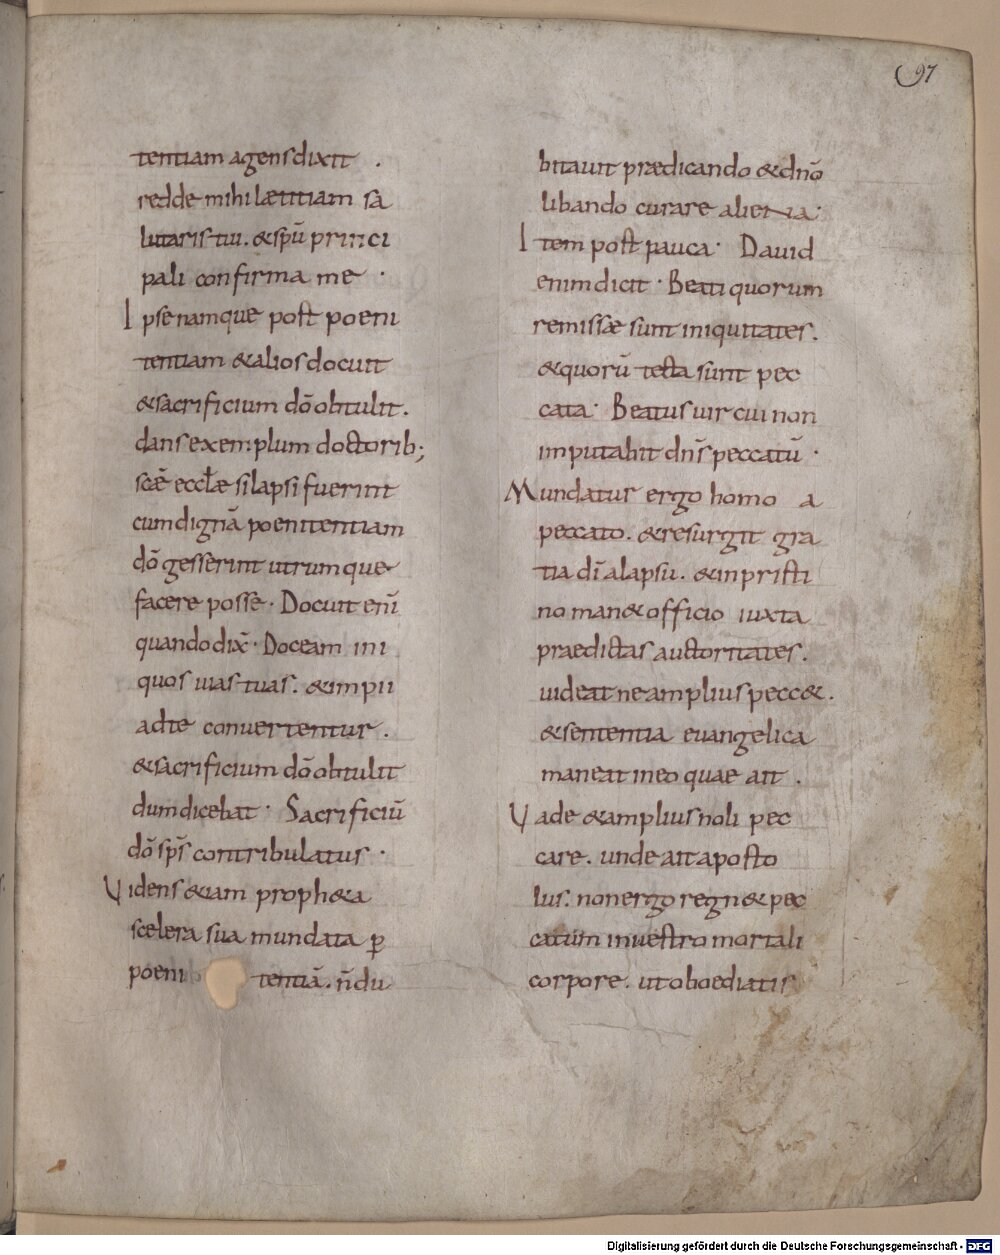 97
tentiam agens dixit .
redde mihi lætitiam sa
lutaris tui. & sp̄ū princi
pali confirma me ·
Ipse namque post poeni
tentiam & alios docuit
& sacrificium dō obtulit.
dans exemplum doctorib;
scǣ eccƚæ si lapsi fuerint
cum dignā poenitentiam
dō gesserint utrumque
facere posse · Docuit enī
quando dix̄ · Doceam ini
quos uias tuas . & impii
ad te conuertentur .
& sacrificium dō obtulit
dum dicebat · Sacrificiū
dō sp̄s contribulatus ·
Videns &iam proph&a
scelera sua mundata ꝑ
poeni tentiā . n̄ du
bitauit prædicando & dn̄o
libando curare aliena ·
Item post pauca · Dauid
enim dicit · Beati quorum
remissæ sunt iniquitates .
& quorū tecta sunt pec
cata · Beatus uir cui non
imputabit dn̄s peccatū ·
Mundatus ergo homo a
peccato . & resurgit gra
tia dī a lapsu . & in pristi
no man& officio iuxta
praedictas auctoritates .
uideat ne amplius pecc& .
& sententia euangelica
maneat in eo quae ait .
Vade & amplius noli pec
care . unde ait aposto
lus : non ergo regn& pec
catum in uestro mortali
corpore . ut oboediatis
Digitalisierung gefördert durch die Deutsche Forschungsgemeinschaft - DFG